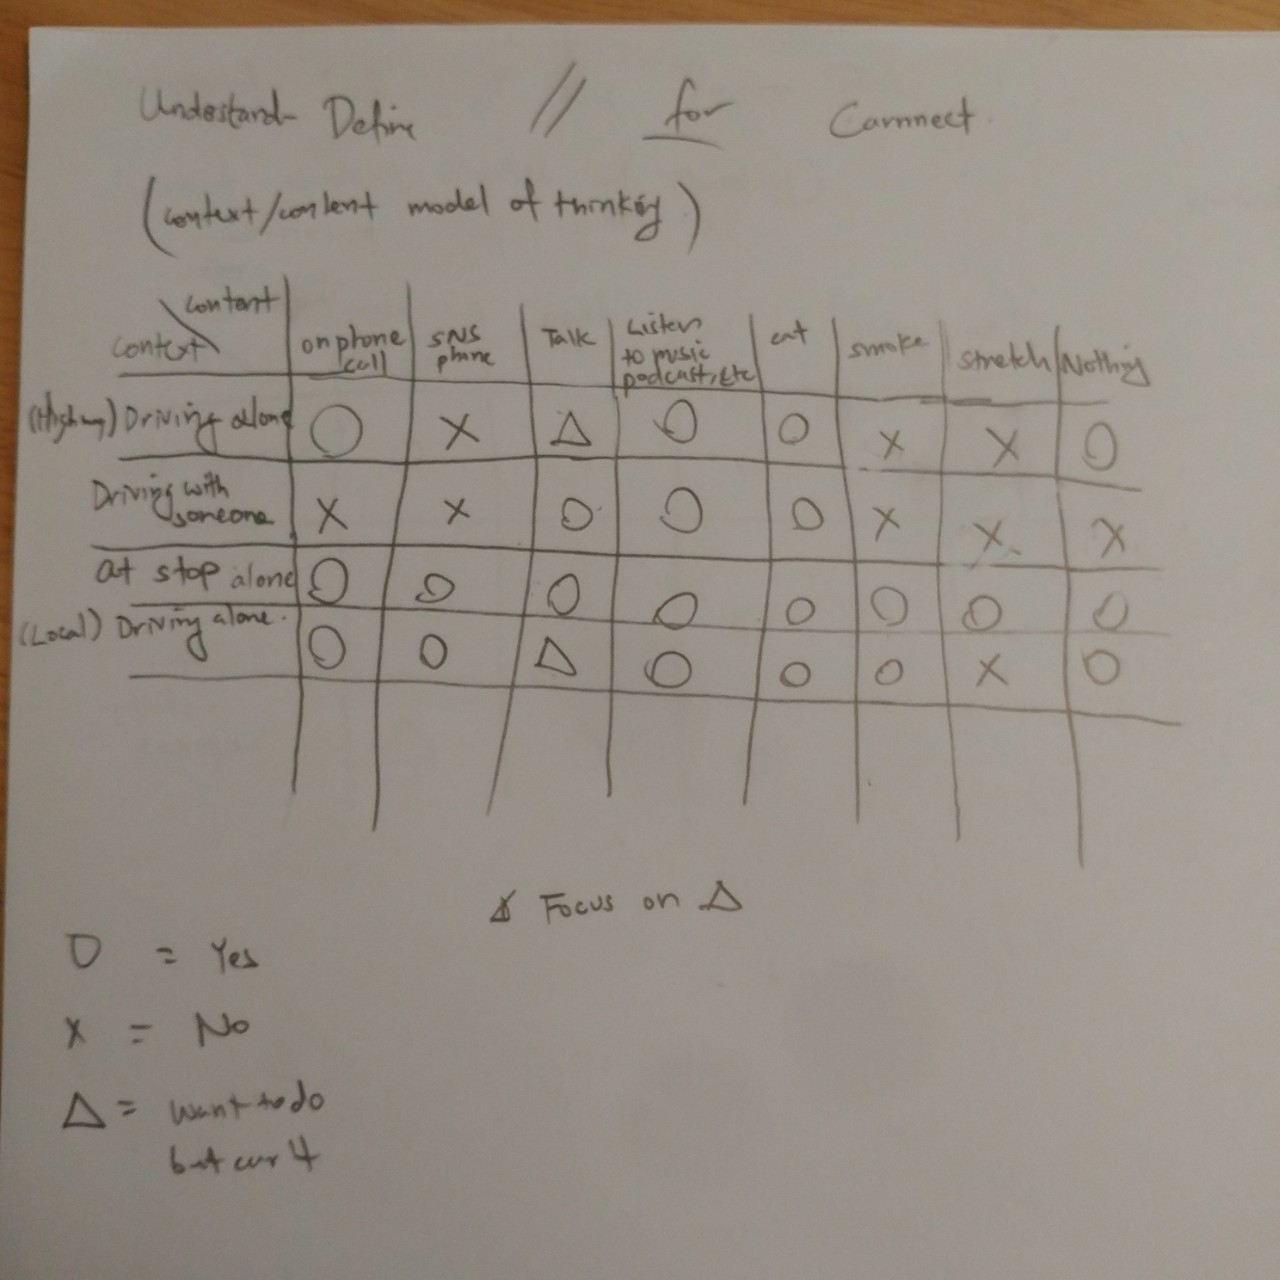 Understand- Define // for Carnnect
(context/content model of thinking)
content
context
on phone call
SNS phone
Talk
Listen to music podcast, etc
eat
smoke
stretch
Nothing
(Highway) Driving alone O X △ O O X X O
Driving with someone X X O O O X X X
at stop alone O O O O O O O O
(Local) Driving alone. O O △ O O O X O
Focus on △
O = Yes
X = No
△ = want to do
but can't